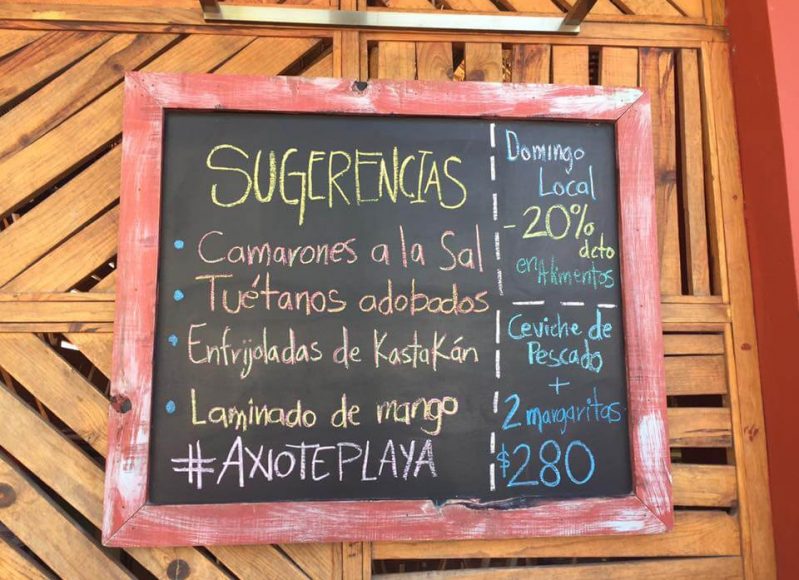 SUGERENCIAS
Camarones a la Sal
Tuétanos adobados
Enfrijoladas de KastaKán
Laminado de mango
#AXIOTEPLAYA
Domingo
Local
-20%
dcto
en Alimentos
Ceviche de
Pescado
+
2 margaritas
$280